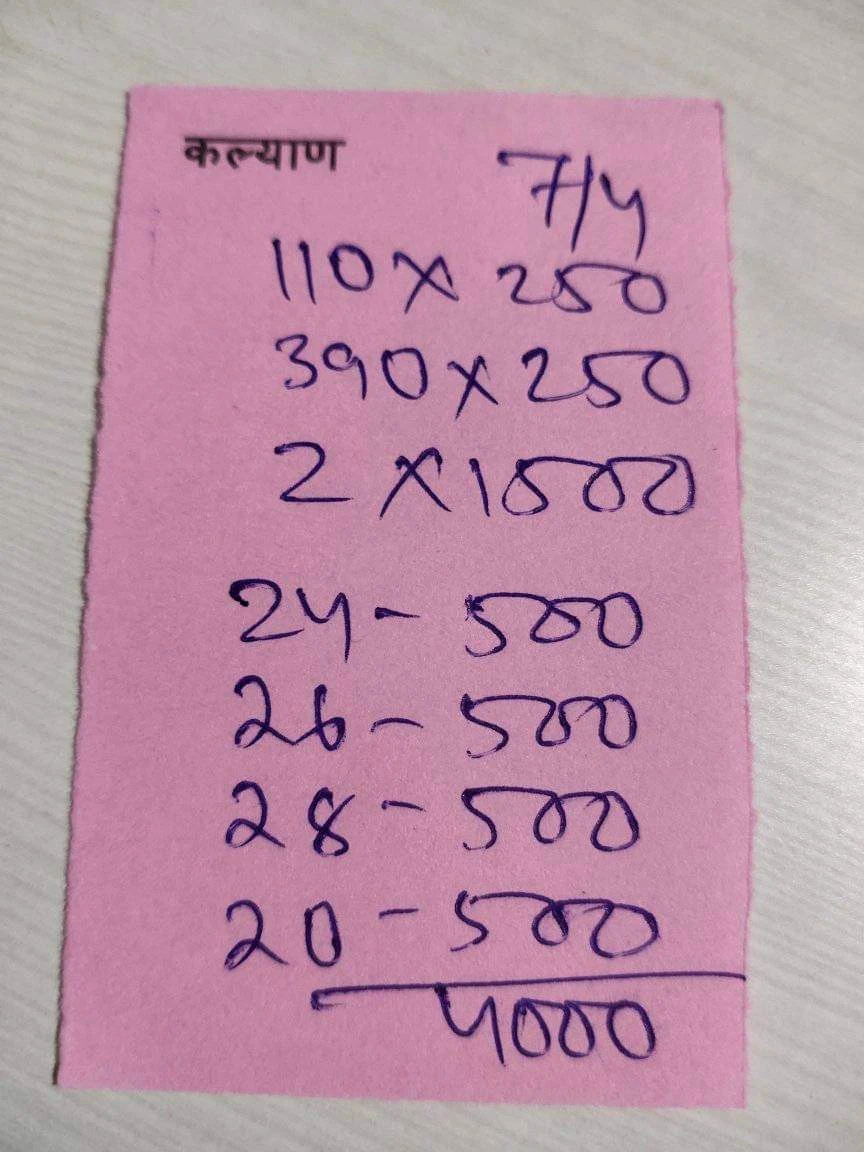 कल्याण
7/4
110 x 250
390 x 250
2 x 1500
24 - 500
26 - 500
28 - 500
20 - 500
4000